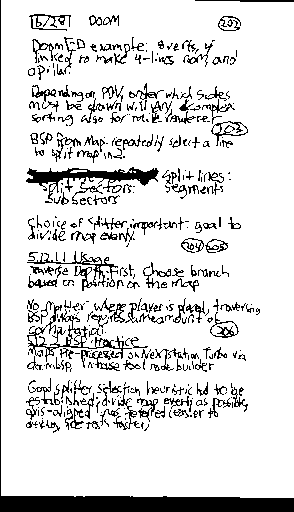 6/28 DOOM 202
DoomED example: 8 verts, 4
linked to make 4-lines room, and
a pillar.
Depending on POV, order which sides
must be drawn will vary, complex
sorting also for tube renderer
203
BSP from Map: repeatedly select a line
to split map in 2.
split lines:
split sectors: segments
subsectors
Choice of splitter important: goal to
divide map evenly.
204 205
5.12.1.1 Usage
Traverse Depth-First, Choose branch
based on position on the map
No matter where player is placed, traversing
BSP always same amount of
computation. 206
5.12.2 BSP Practice
Maps Pre-processed on NeXTstation Turbo via
doombsp. In-house tool node builder
Good splitter selection heuristic had to be
established; divide map evenly as possible,
axis-aligned lines preferred (easier to
faster)